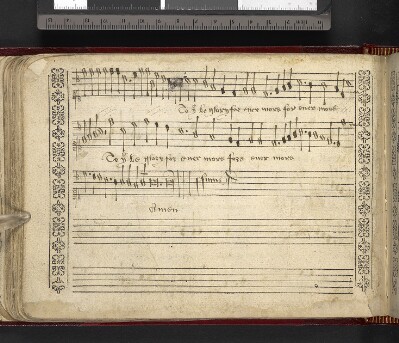 To yͤ be glory for ever more for ever more
To yͤ be glory for ever more fore ever more
Amen